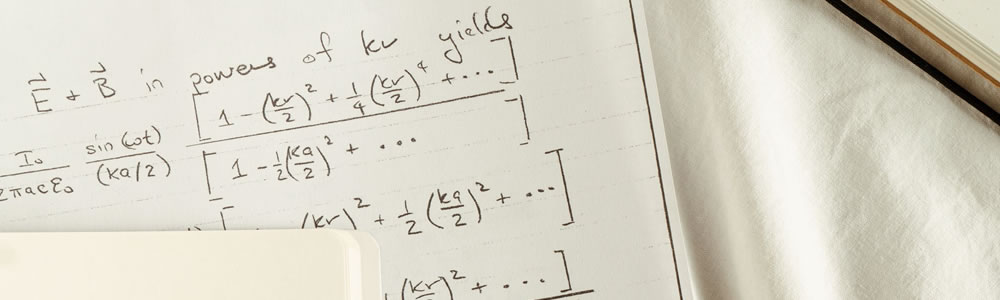 E⃗ + B⃗ in powers of kr yields
I₀/2πacε₀ sin(ωt)/(ka/2) [1 - (kr/2)² + 1/4 (kr/2)⁴ + ...] / [1 - 1/2 (ka/2)² + ...]
[ (kr)² + 1/2 (ka/2)² + ...]
(kr/2)² + ...]